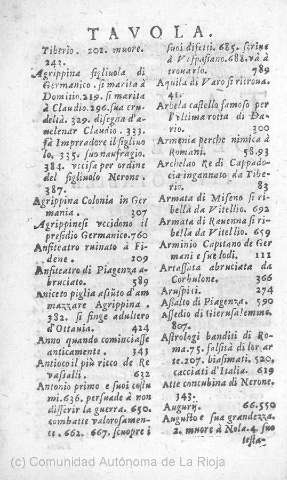 TAVOLA.
Tiberio. 202. muore.
242.
Agrippina figliuola di
Germanico. si marita à
Domitio. 219. si marita
à Claudio. 296. sua cru-
deltà. 329. disegna d'a-
uelenar Claudio. 333.
fa Imperadore il figliuo
lo. 335. suo naufragio.
384. vccisa per ordine
del figliuolo Nerone.
387.
Agrippina Colonia in Ger
mania. 307
Agrippinesi vccidono il
presidio Germanico. 760
Anfiteatro ruinato à Fi-
dene. 209
Anfiteatro di Piagenza a-
bruciato. 589
Aniceto piglia assũto d'am
mazzare Agrippina.
382. si finge adultero
d'Ottauia. 424
Anno quando cominciasse
anticamente. 343
Antioco il più ricco de Re
vasalli. 632
Antonio primo e suoi costu
mi. 636. persuade à non
differir la guerra. 650.
combatte valorosamen-
te. 662. 667. scuopre i
suoi difetti. 685. scriue
à Vespasiano. 688. và à
trouarlo. 789
Aquila di Varo si ritroua.
41.
Arbela castello famoso per
l'vltima rotta di Da-
rio. 300
Armenia perche nimica à
Romani. 58.93
Archelao Re di Cappado-
cia ingannato da Tibe-
rio. 83
Armata di Miseno si ri-
bella da Vitellio. 692
Armata di Rauenna si ri-
bella da Vitellio. 659
Arminio Capitano de Ger
mani e sue lodi. 111
Artassata abruciata da
Corbulone. 366
Aruspici. 274
Assalto di Piagenza. 590
Assedio di Gierusalemme.
807.
Astrologi banditi di Ro-
ma. 75. falsità di lor ar
te. 207. biasimati. 520.
cacciati d'Italia. 619
Atte concubina di Nerone.
343.
Augurij. 66.550
Augusto e sua grandezza.
2. muore à Nola. 4. suo
testa-
(c) Comunidad Autónoma de La Rioja